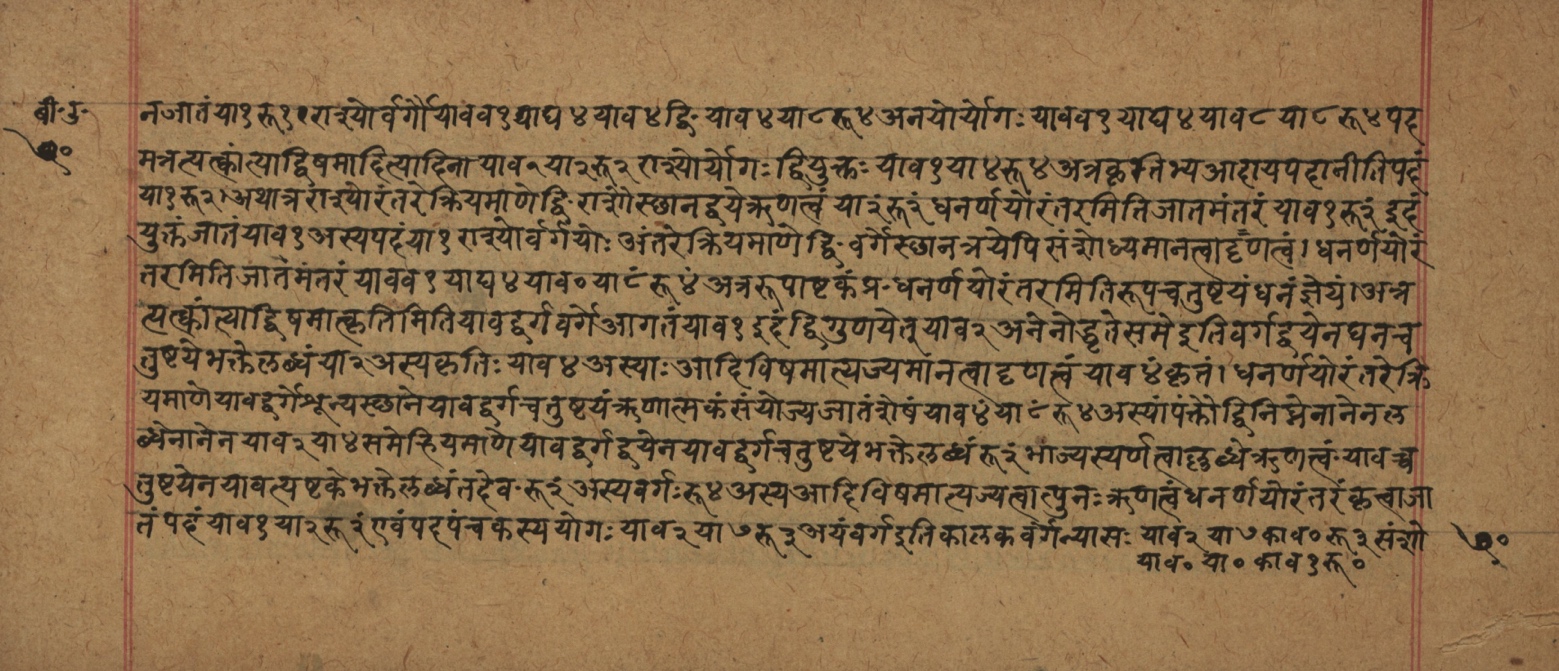 बी॰उ॰
५०
नजातंया१रू११राश्योर्वर्गौयावव१याघ४याव४द्विः याव४या८रू४अनयोर्योगः यावव१याघ४याव८या८रू४पद
मत्रत्यत्कांत्याद्विषमादित्यादिना याव१या२रू२ राश्योर्योगः द्वियुक्तः याव१या४रू४अत्रकृतिभ्यआदायपदानीतिपदं
या१रू२।अथात्रराश्योरंतरेक्रियमाणेद्विः राशौस्छानद्वयेऋणत्वं या२ंरू२ंधनर्णयोरंतरमितिजातमंतरं याव१रू२ं इदं
युक्तंजातंयाव१अस्यपदंया१ राश्योर्वर्गयोः अंतरेक्रियमाणेद्विः वर्गेस्छानत्रयेपिसंशोध्यमानत्वादृणत्वं।धनर्णयोरं
तरमितिजातंमंतरं यावव१याघ४याव०या८ंरू४ंअत्ररूपाष्टकंप्र॰धनर्णयोरंतरमितिरूपचतुष्टयंधनंज्ञेयं।अत्र
त्यत्कांत्याद्विषमात्कृतिमितियावद्वर्गवर्गेआगतंयाव१इदंद्विगुणयेत्याव२अनेनोद्धृतेसमेइतिवर्गद्वयेनघनच
तुष्टयेभक्तेलब्धंया२अस्यकृतिः याव४अस्याः आदिविषमात्यज्यमानत्वादृणत्वं याव४ंकृतं।धनर्णयोरंतरेक्रि
यमाणेयावद्वर्गेशून्यस्छानेयावद्वर्गचतुष्टयंऋणात्मकंसंयोज्यजातंशेषंयाव४ंया८ंरू४अस्यांपंक्तौद्विनिघ्नेनानेनल
ब्धेनानेनयाव२या४समेह्रियमाणेयावद्वर्गद्वयेनयावद्वर्गचतुष्टयेभक्तेलब्धंरू२ंभाज्यस्यर्णत्वाल्लब्धेऋणत्वं॰यावच्च
तुष्टयेनयावत्यष्टकेभक्तेलब्धंतदेव॰रू२ंअस्यवर्गः रू४अस्यआदिविषमात्यज्यत्वात्पुनः ऋणत्वंधनर्णयोरंतरंकृत्वाजा
तंपदंयाव१या२रू२ंएवंपदपंचकस्ययोगः याव२या७रू३अयंवर्गइतिकालकवर्गन्यासः याव२या७काव०रू३संशो
याव०या०काव१रू०
५०